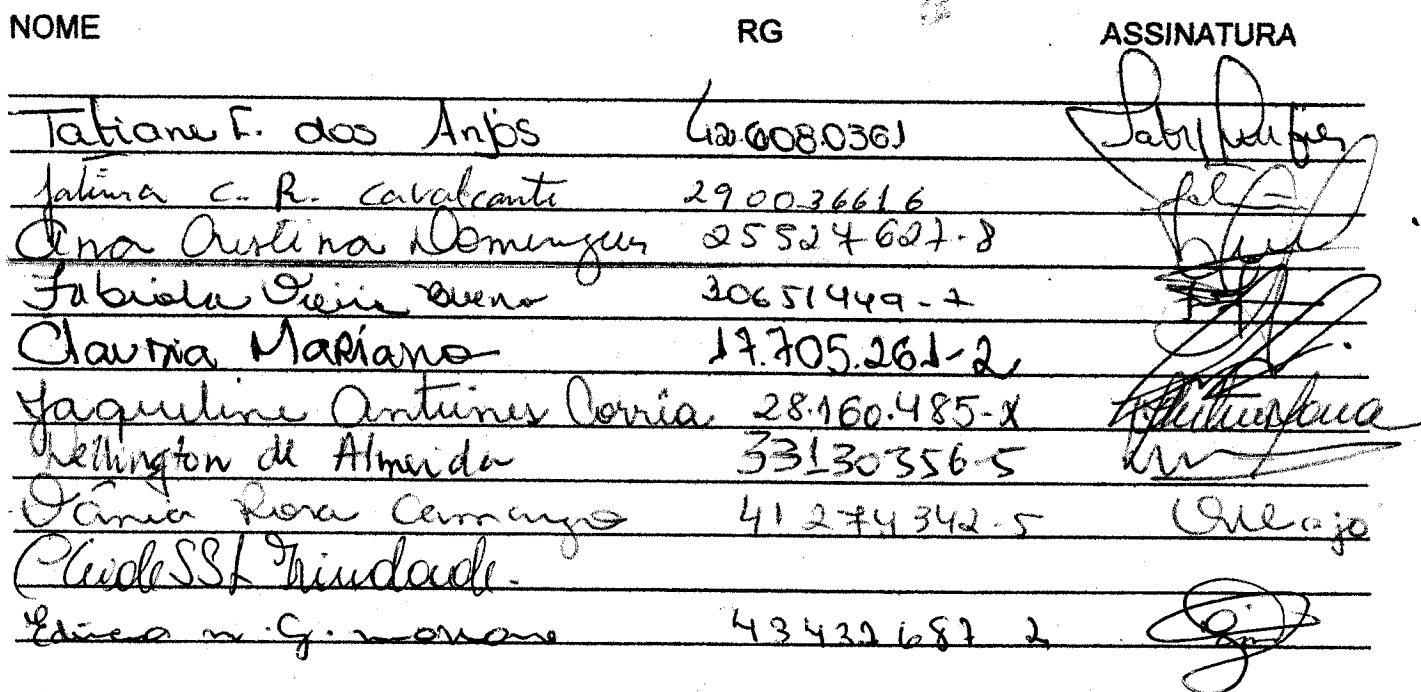 NOME RG ASSINATURA
Tatiane F. dos Anjos 42.6080361
Fatima C. R. Cavalcante 290036616
Ana Cristina Domingues 25527627-8
Fabiola Vieira Bueno 30651449-7
Claudia Mariano 17.705.261-2
Jaqueline Antunes Corrêa 28.160.485-X
Wellington de Almeida 33130356-5
Vânia Rosa Camargo 41274342-5
Cleide SSL Trindade.
M. G. 43432687 2